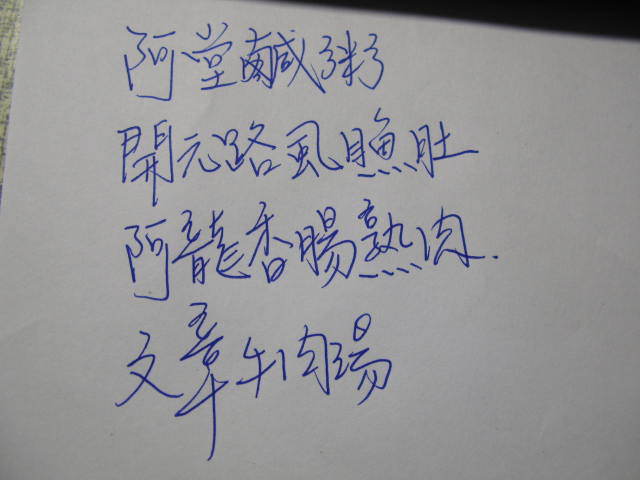 阿堂鹹粥
開元路虱目魚肚
阿龍香腸熟肉.
文章牛肉湯